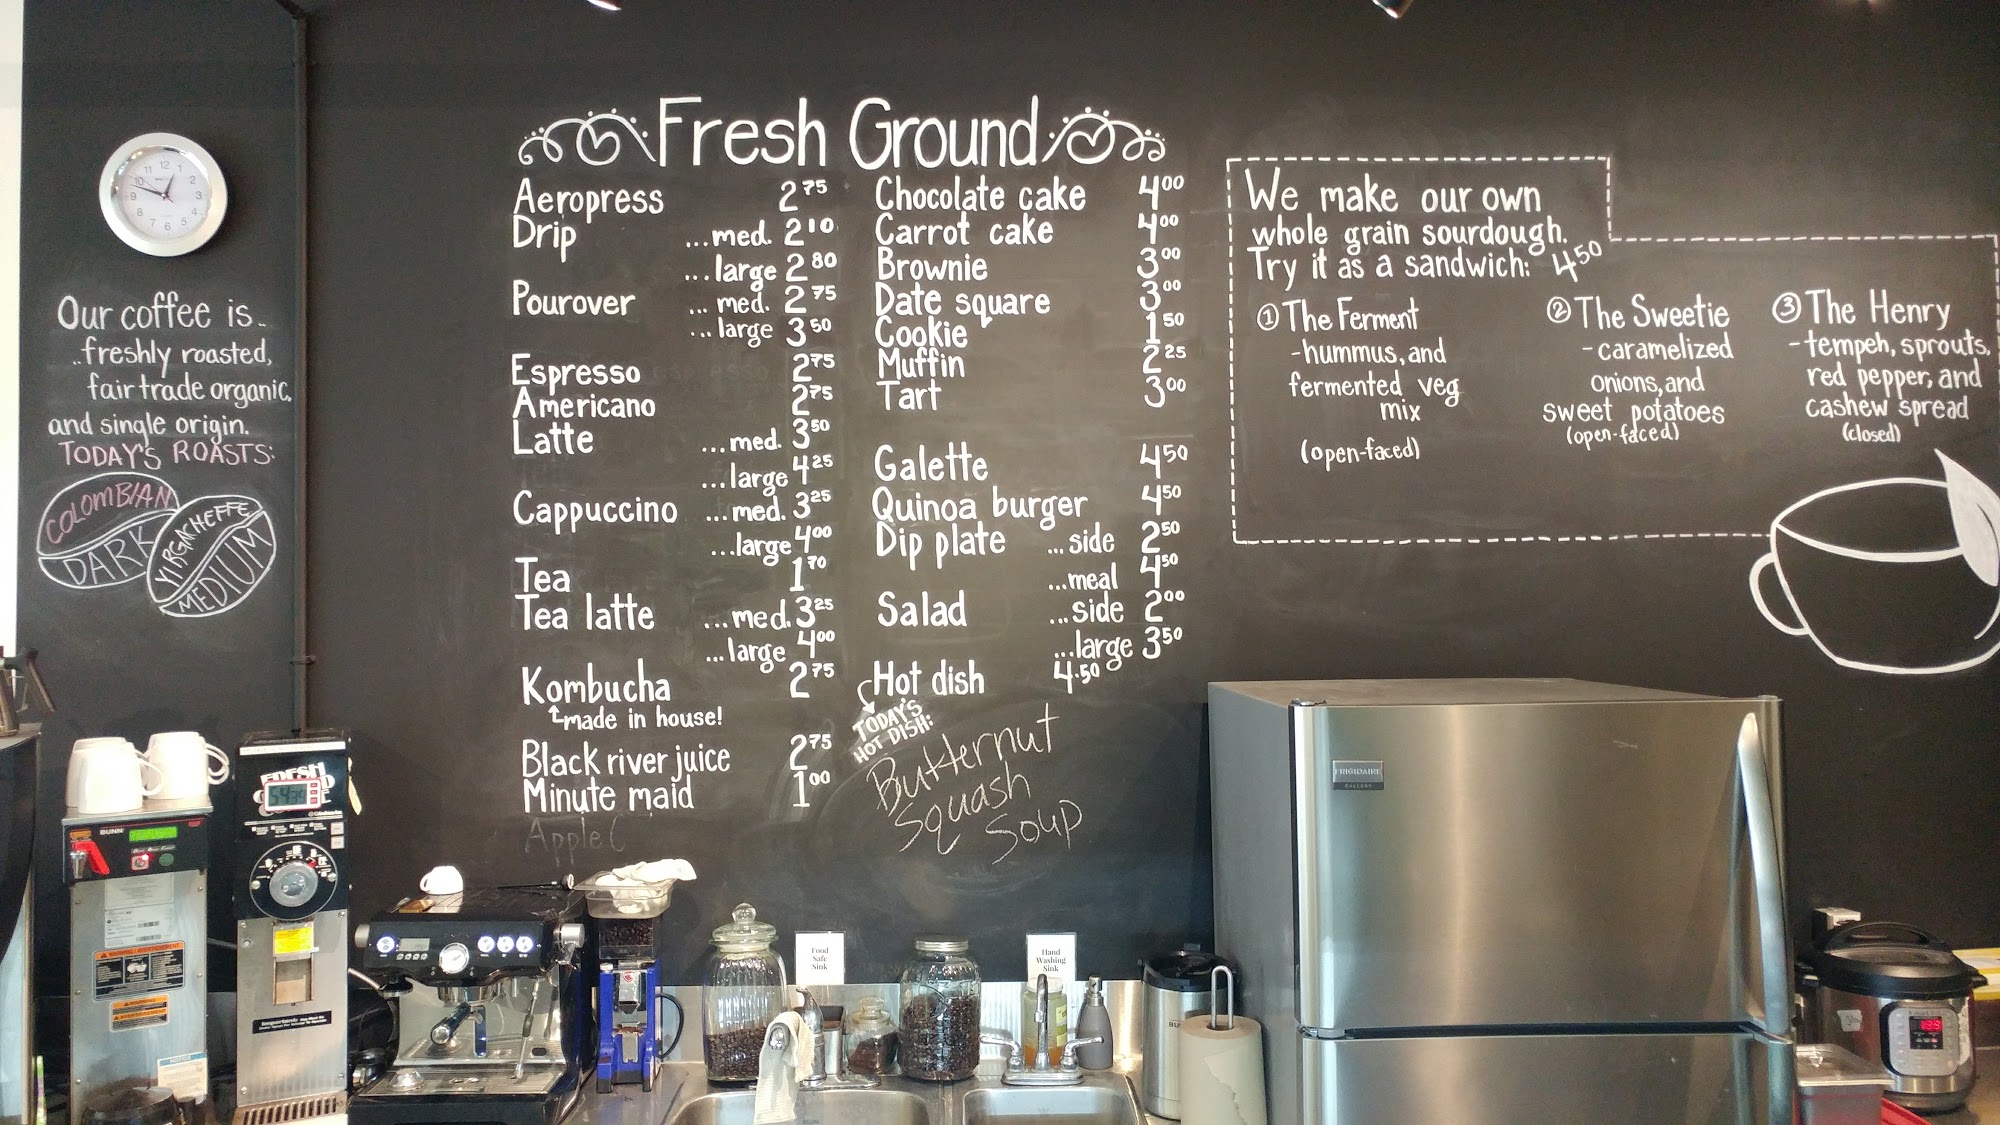 Fresh Ground
Aeropress 2 75
Drip ...med. 2 10
...large 2 80
Pourover ...med. 2 75
...large 3 50
Espresso 2 75
Americano 2 75
Latte ...med. 3 50
...large 4 25
Cappuccino ...med. 3 25
...large 4 00
Tea 1 70
Tea latte ...med. 3 25
...large 4 00
Kombucha 2 75
made in house!
Black river juice 2 75
Minute maid 1 00
Apple C
Chocolate cake 4 00
Carrot cake 4 00
Brownie 3 00
Date square 3 00
Cookie 1 50
Muffin 2 25
Tart 3 00
Galette 4 50
Quinoa burger 4 50
Dip plate ...side 2 50
...meal 4 50
Salad ...side 2 00
...large 3 50
Hot dish 4.50
TODAY'S
HOT DISH:
Butternut
Squash
Soup
We make our own
whole grain sourdough.
Try it as a sandwich: 4 50
① The Ferment
-hummus, and
fermented veg
mix
(open-faced)
② The Sweetie
-caramelized
onions, and
sweet potatoes
(open-faced)
③ The Henry
-tempeh, sprouts,
red pepper, and
cashew spread
(closed)
12 1 2 3 4 5 6 7 8 9 10 11
Our coffee is..
..freshly roasted,
fair trade organic,
and single origin.
TODAY'S ROASTS:
COLOMBIAN
DARK
YIRGACHEFFE
MEDIUM
BUNN
FRESH
Food
Safe
Sink
Hand
Washing
Sink
FRIGIDAIRE
GALLERY